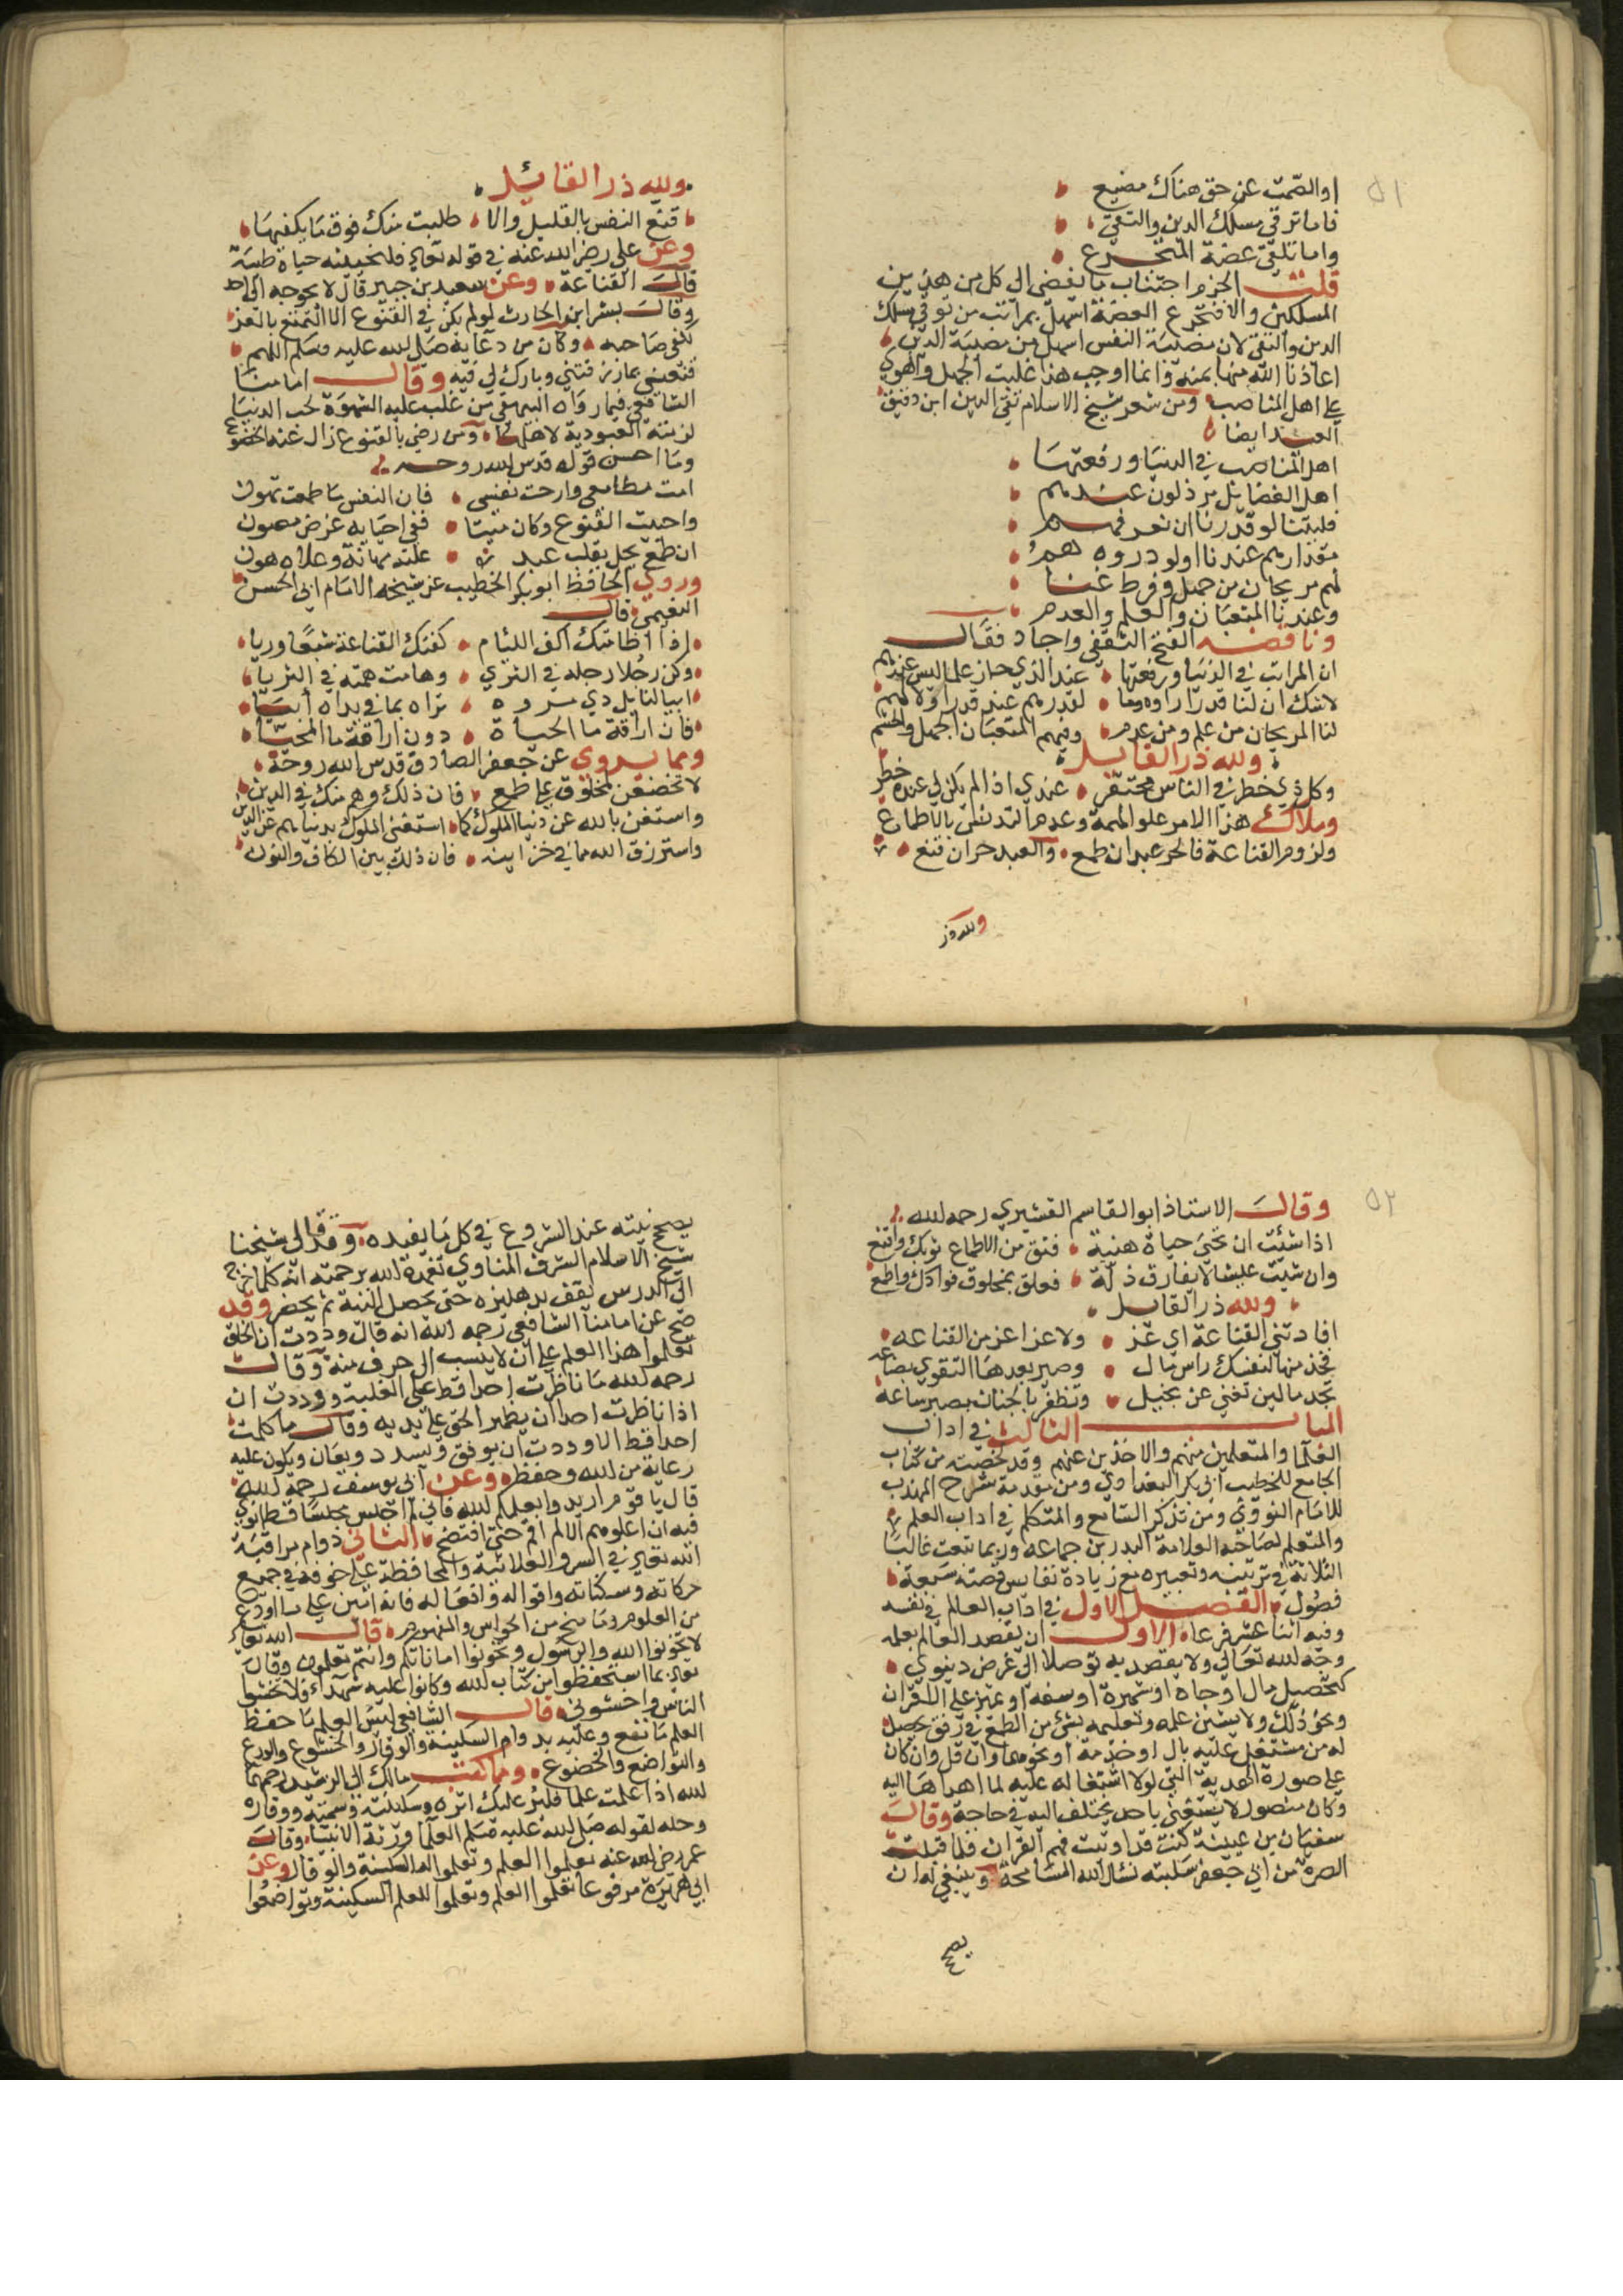 ٥١
او الصمت عن حق هناك مضيع
فاما ترقى مسلك الدين والتقى
واما تلقى غصة المتجرع
قلت الحزم اجتناب ما يفضى الى كل من هذين
المسلكين والا فتجرع الغصة اسهل بمراتب من توقى مسلك
الدين والتقى لان مصيبة النفس اسهل من مصيبة الدين
اعاذنا الله منها بمنه وانما اوجب هذا غلبت الجهل والهوى
على اهل المناصب ومن شعر شيخ الاسلام تقى الدين ابن دقيق
العيد ايضا
اهل المناصب في الدنيا ورفعتها
اهل الفضائل مرذلون عندهم
فليتنا لو قدرنا ان نعرفهم
مقدارهم عندنا اولو دروه هم
لهم مريحان من جهل وفرط غنا
وعندنا المتعبان والعلم والعدم
وناقضه الفتح الثقفي واجاد فقال
ان المراتب في الدنيا ورفعتها عند الذي حاز علما ليس عندهم
لا شك ان لنا قدرا راوه وما لقدرهم عند قدرا ولا لهم
لنا المريحان من علم ومن عدم وفيهم المتعبان الجهل والحشم
ولله در القايل
وكل ذي خطر في الناس محتقر عندي اذا لم يكن لي عنده خطر
وملاك هذا الامر علو الهمة وعدم التدنس بالاطماع
ولزوم القناعة فالحر عبد ان طمع والعبد حر ان قنع
ولله در
ولله در القائل
قنع النفس بالقليل والا طلبت منك فوق ما يكفيها
وعن علي رضي الله عنه في قوله تعالى فلنحيينه حياة طيبة
قال القناعة وعن سعيد بن جبير قال لا يحوجه الى احد
وقال بشر ابن الحارث لو لم يكن في القنوع الا التمتع بالعز
لكفى صاحبه وكان من دعايه صلى الله عليه وسلم اللهم
قنعني بما رزقتني وبارك لي فيه وقال امامنا
الشافعي فيما رواه البيهقي من غلب عليه الشهوة لحب الدنيا
لزمته العبودية لاهلها ومن رضي بالقنوع زال عنه الخضوع
وما احسن قوله قدس الله روحه
امت مطامعي وارحت نفسي فان النفس ما طمعت تهون
واحييت القنوع وكان ميتا ففي احيايه عرض مصون
ان طمع يحل بقلب عبد علته مهانة وعلاه هون
وروى الحافظ ابو بكر الخطيب عن شيخه الامام ابي الحسن
النعيمي قال
اذا اظماتك اكف اللئام كفتك القناعة شبعا وريا
وكن رجلا رجله في الثرى وهامت همته في الثريا
ابيا لنايل ذي ثروة تراه بما في يداه ابيا
فان اراقة ما الحياة دون اراقة ما المحيا
ومما يروى عن جعفر الصادق قدس الله روحه
لا تخضعن لمخلوق على طمع فان ذلك وهم منك في الدين
واستغن بالله عن دنيا الملوك كما استغنى الملوك بدنياهم عن الدين
واسترزق الله مما في خزاينه فان ذلك بين الكاف والنون
٥٢
وقال الاستاذ ابو القاسم القشيري رحمه الله
اذا شئت ان تحيى حياة هنية فنق من الاطماع ثوبك واقنع
وان شيت عيشا لا يفارق ذلة فعلق بمخلوق فوادك واطمع
ولله در القايل
افادتني القناعة اي عز ولا عز اعز من القناعه
فخذ منها لنفسك راس مال وصير بعدها التقوى بضاعه
تجد مالين تغني عن بخيل وتظفر بالجنان بصبر ساعه
الباب الثالث في اداب
العلما والمتعلمين منهم والاخذين عنهم وقد لخصته من كتاب
الجامع للخطيب ابي بكر البغدادي ومن مقدمة شرح المهذب
للامام النووي ومن تذكر السامع والمتكلم في اداب العلم
والمتعلم لصاحبه العلامة البدر بن جماعه وربما تتبعت غالبا
الثلاثة في ترتيبه وتعبيره مع زيادة نفايس فصته سبعة
فصول الفصل الاول في اداب العالم في نفسه
وفيه اثنا عشر فرعا الاول ان يقصد العالم بعلمه
وجه الله تعالى ولا يقصد به توصلا الى غرض دنيوي
كتحصيل مال او جاه او شهرة او سمعة او تميز على الاقران
ونحو ذلك ولا يشين علمه وتعليمه بشئ من الطمع في رفق يحصل
له من مشتغل عليه بال او خدمة او نحوهما وان قل وان كان
على صورة الهدية التي لولا اشتغاله عليه لما اهداها اليه
وكان منصور لا يستعين باحد يختلف اليه في حاجة وقال
سفيان بن عيينة كنت قد اوتيت فهم القران فلما قبلت
الصرة من ابي جعفر سلبته نسال الله المسامحة وينبغي له ان
يصح
يصحح نيته عند الشروع في كل ما يفيده وقد قال لي شيخنا
شيخ الاسلام الشرف المناوي تغمده الله برحمته انه كلما خرج
الى الدرس يقف بدهليزه حتى تحصل النية ثم يحضر وقد
صح عن امامنا الشافعي رحمه الله انه قال وددت ان الخلق
تعلموا هذا العلم على ان لا ينسب الى حرف منه وقال
رحمه الله ما ناظرت احدا قط على الغلبة ووددت ان
اذا ناظرت احدا ان يظهر الحق على يديه وقال ما كلمت
احدا قط الا وددت ان يوفق ويسدد ويعان ويكون عليه
رعاية من الله وحفظه وعن ابي يوسف رحمه الله
قال يا قوم اريدوا بعلمكم الله فاني لم اجلس مجلسا قط انوي
فيه ان اعلوهم الا لم اقم حتى افتضح الثاني دوام مراقبة
الله تعالى في السر والعلانية والمحافظة على خوفه في جميع
حركاته وسكناته واقواله وافعاله فانه امين على ما اودع
من العلوم وما منح من الحواس والفهوم قال الله تعالى
لا تخونوا الله والرسول وتخونوا اماناتكم وانتم تعلمون وقال
تعالى بما استحفظوا من كتاب الله وكانوا عليه شهداء فلا تخشوا
الناس واخشوني قال الشافعي ليس العلم ما حفظ
العلم ما نفع وعليه بدوام السكينة والوقار والخشوع والورع
والتواضع والخضوع ومما كتب مالك الى الرشيد رحمهما
الله اذا علمت علما فلير عليك اثره وسكينته وسمته ووقاره
وحلمه لقوله صلى الله عليه وسلم العلما ورثة الانبيا وقال
عمر رضي الله عنه تعلموا العلم وتعلموا له السكينة والوقار وعن
ابي هريرة مرفوعا تعلموا العلم وتعلموا للعلم السكينة وتواضعوا